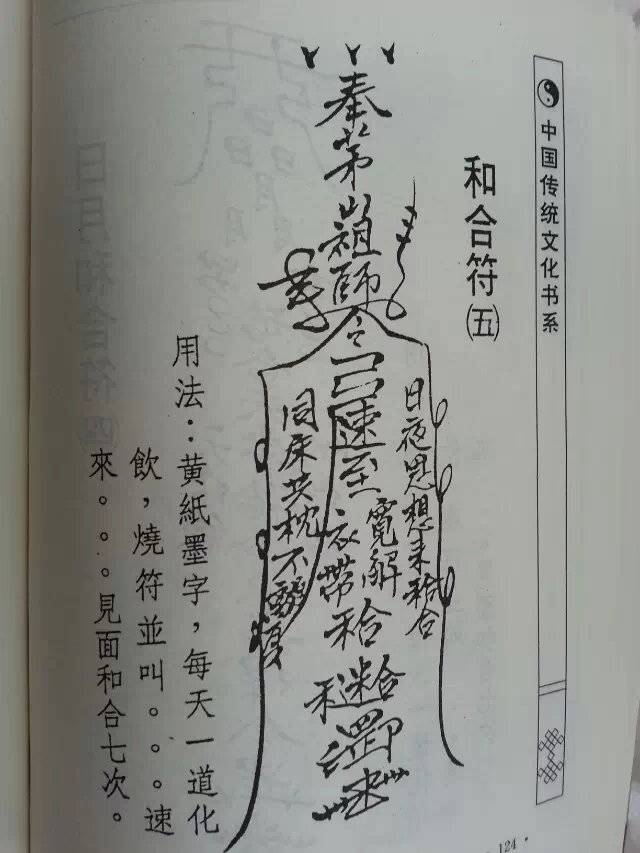 中国传统文化书系
和合符㈤
奉茅山祖師
令
速至
日夜思想來和合
寬解
衣帶
同床共枕不
和合
用法：黄紙墨字，每天一道化
飲，燒符並叫。。。速
來。。。見面和合七次。
124